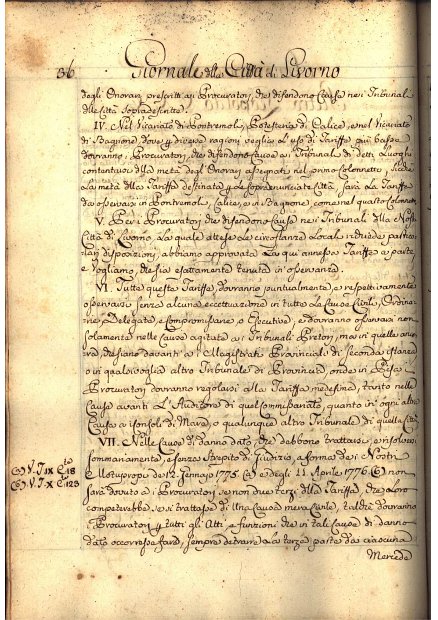 36 Giornale della Città di Livorno
degli Onorarj prescritti ai Procuratori, che difendono Cause nei Tribunali
delle Città sopradescritte.
IV. Nel Vicariato di Pontremoli, Potesteria di Calice, e nel Vicariato
di Bagnone, dove per diverse ragioni veglia l'uso di Tariffe più basse
dovranno i Procuratori, che difendono Cause ai Tribunali di detti Luoghi
contentarsi della metà degli Onorarj assegnati nel primo Colonnetto, sicchè
la metà della Tariffa destinata per le soprenunciate Città, sarà la Tariffa
da osservarsi in Pontremoli, Calice, e in Bagnone, come nel quarto Colonnetto.
V. Per i Procuratori, che difendono Cause nei Tribunali della Nostra
Città di Livorno, la quale attese le circostanze Locali richiede partico-
lari disposizioni, abbiamo approvata la qui annessa Tariffa a parte,
e Vogliamo, che sia esattamente tenuta in osservanza.
VI. Tutte queste Tariffe dovranno puntualmente, e respettivamente
osservarsi senza alcuna eccettuazione in tutte le Cause Civili, Ordina-
rie, Delegate, e Compromissarie, o Esecutive, e dovranno osservarsi non
solamente nelle Cause agitate ai Tribunali Pretorj, ma in quelle anco-
ra, che siano davanti ai Magistrati Provinciali di seconda istanza
o in qualsivoglia altro Tribunale di Provincia, onde in Pisa i
Procuratori dovranno regolarsi alla Tariffa medesima, tanto nelle
Cause avanti l'Auditore di quel Commissariato, quanto in ogni altra
Causa ai Consoli di Mare, o qualunque altro Tribunale di quella Città.
VII. Nelle Cause di danno dato, che debbono trattarsi, e risolversi
sommariamente, e senza Strepito di Giudizio, a forma dei Nostri
(a) V. T. IX Cte 18
Motuproprj de' 12. Gennajo 1775. (a) e degli 11. Aprile 1776. (b) non
(b) V. T. X Cte 123
sarà dovuto ai Procuratori se non due terzi della Tariffa, che loro
competerebbe, se si trattasse di una Causa mera Civile, talchè dovranno
i Procuratori per tutti gli Atti e funzioni che in tali Cause di danno
dato occorresse fare, sempre detrarre la terza parte da ciascuna
Mercede